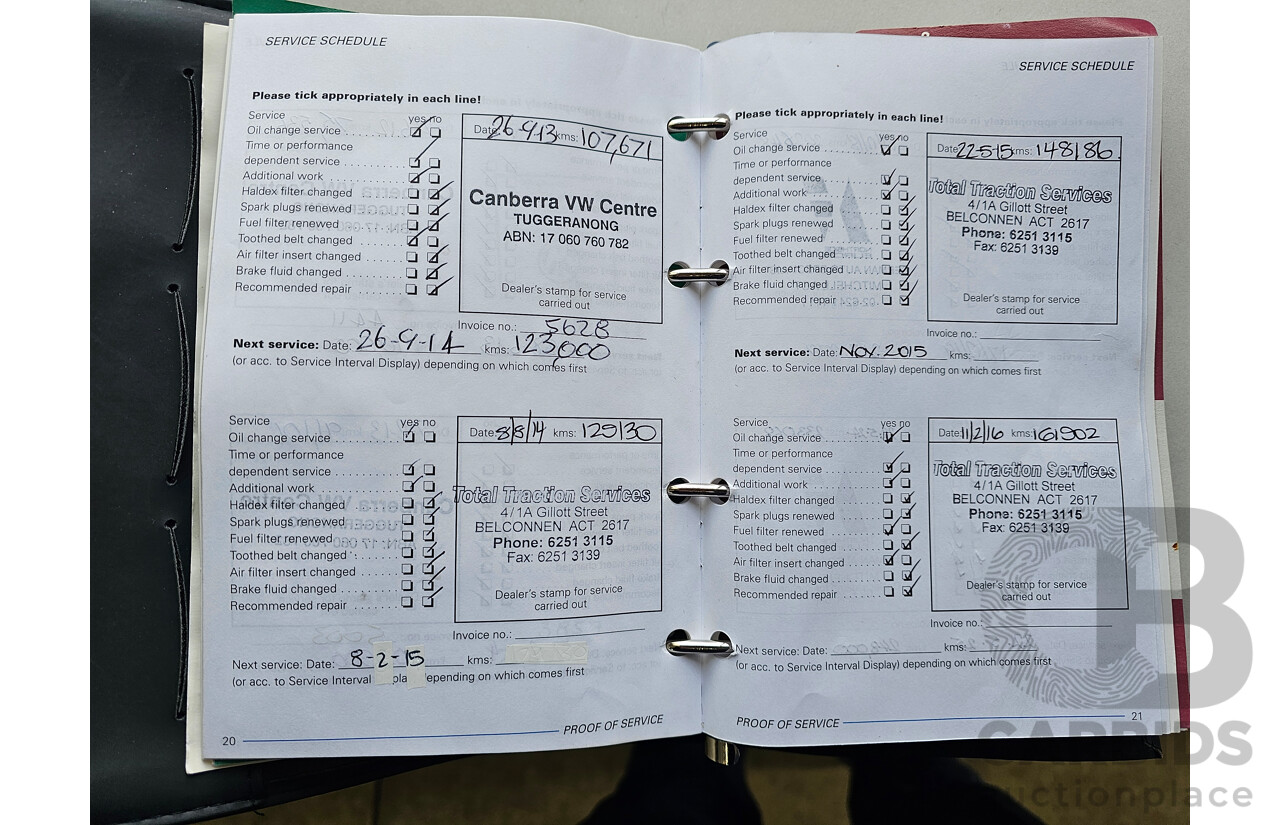 SERVICE SCHEDULE
Please tick appropriately in each line!
Service yes no
Oil change service
Time or performance
dependent service
Additional work
Haldex filter changed
Spark plugs renewed
Fuel filter renewed
Toothed belt changed
Air filter insert changed
Brake fluid changed
Recommended repair
Date: 26-9-13 kms: 107,671
Canberra VW Centre
TUGGERANONG
ABN: 17 060 760 782
Dealer's stamp for service
carried out
Invoice no.: 5628
Next service: Date: 26-9-14 kms: 123,000
(or acc. to Service Interval Display) depending on which comes first
Service yes no
Oil change service
Time or performance
dependent service
Additional work
Haldex filter changed
Spark plugs renewed
Fuel filter renewed
Toothed belt changed
Air filter insert changed
Brake fluid changed
Recommended repair
Date: 8/8/14 kms: 129130
Total Traction Services
4/1A Gillott Street
BELCONNEN ACT 2617
Phone: 6251 3115
Fax: 6251 3139
Dealer's stamp for service
carried out
Invoice no.:
Next service: Date: 8-2-15 kms:
(or acc. to Service Interval pla epending on which comes first
20 PROOF OF SERVICE
SERVICE SCHEDULE
Please tick appropriately in each line!
Service yes no
Oil change service
Time or performance
dependent service
Additional work
Haldex filter changed
Spark plugs renewed
Fuel filter renewed
Toothed belt changed
Air filter insert changed
Brake fluid changed
Recommended repair
Date: 22-5-15 kms: 148186
Total Traction Services
4/1A Gillott Street
BELCONNEN ACT 2617
Phone: 6251 3115
Fax: 6251 3139
Dealer's stamp for service
carried out
Invoice no.:
Next service: Date: NOV. 2015 kms:
(or acc. to Service Interval Display) depending on which comes first
Service yes no
Oil change service
Time or performance
dependent service
Additional work
Haldex filter changed
Spark plugs renewed
Fuel filter renewed
Toothed belt changed
Air filter insert changed
Brake fluid changed
Recommended repair
Date: 11/2/16 kms: 161902
Total Traction Services
4/1A Gillott Street
BELCONNEN ACT 2617
Phone: 6251 3115
Fax: 6251 3139
Dealer's stamp for service
carried out
Invoice no.:
Next service: Date: kms:
(or acc. to Service Interval Display) depending on which comes first
PROOF OF SERVICE 21
CARBIDS
auctionplace